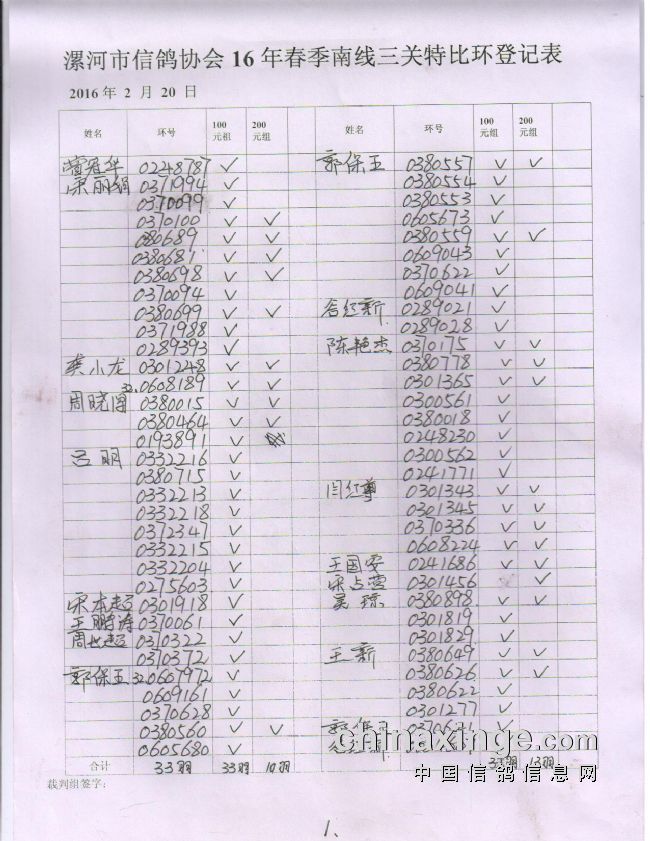 漯河市信鸽协会16年春季南线三关特比环登记表
2016年 2 月 20 日
姓名 环号 100元组 200元组 姓名 环号 100元组 200元组
冠华 02248787 ✓ 郭保玉 0380557 ✓ ✓
宋丽娟 0371994 ✓ 0380554 ✓
0370099 ✓ 0380553 ✓
0370100 ✓ ✓ 0605673 ✓
0380689 ✓ ✓ 0380559 ✓ ✓
0380681 ✓ ✓ 0609043 ✓
0380698 ✓ ✓ 0370622 ✓
0370094 ✓ 0609041 ✓
0380699 ✓ ✓ 谷红新 0289021 ✓
0371988 ✓ 0289028 ✓
0289393 ✓ 陈艳杰 0370175 ✓ ✓
龚小龙 0301248 ✓ ✓ 0380778 ✓ ✓
32.0608189 ✓ ✓ 0301365 ✓ ✓
周晓博 0380015 ✓ ✓ 0300561 ✓
0380464 ✓ ✓ 0380018 ✓
0193891 ✓ 0248230 ✓
吕明 0332216 ✓ 0300562 ✓
0380715 ✓ 0241771 ✓
0332213 ✓ 闫红尊 0301343 ✓ ✓
0332218 ✓ 0301345 ✓ ✓
0372347 ✓ 0370336 ✓ ✓
0332215 ✓ 0608224 ✓ ✓
0332204 ✓ 王国安 0241686 ✓ ✓
0275603 ✓ 宋占营 0301456 ✓
宋本超 0301918 ✓ 吴琼 0380898 ✓ ✓
王鹏涛 0370061 ✓ 0301819 ✓
周世超 0370322 ✓ 0301829 ✓
0370372 ✓ 王新 0380649 ✓ ✓
郭保玉 320607972 ✓ 0380626 ✓ ✓
0609161 ✓ 0380622 ✓
0370628 ✓ 0301277 ✓
0380560 ✓ ✓ 郭保 ✓
0605680 ✓
合计 33羽 33羽 10羽 33羽 13羽
裁判组签字：
chinaxinge.com
中国信鸽信息网
1、